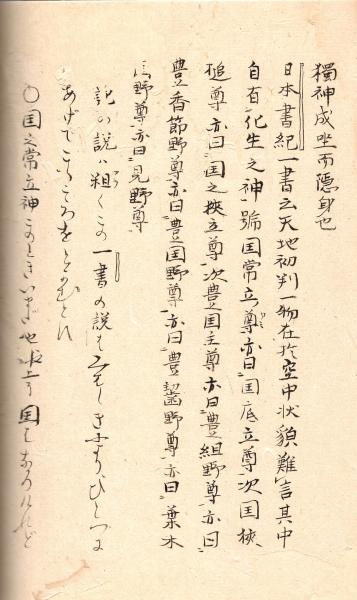 獨神成坐而隠身也
日本書紀一書云天地初判一物在於空中状貌難言其中
自有化生之神號国常立尊亦曰国底立尊次国狭
槌尊亦曰国之狭立尊次豊国主尊亦曰豊組野尊亦曰
豊香節野尊亦曰豊国野尊亦曰豊齧野尊亦曰葉木
国野尊亦曰見野尊
記の説は粗くこの一書の説も
あげてこゝろをとゝむとは
〇国之常立神このときいまだ地といふ国もなけれど